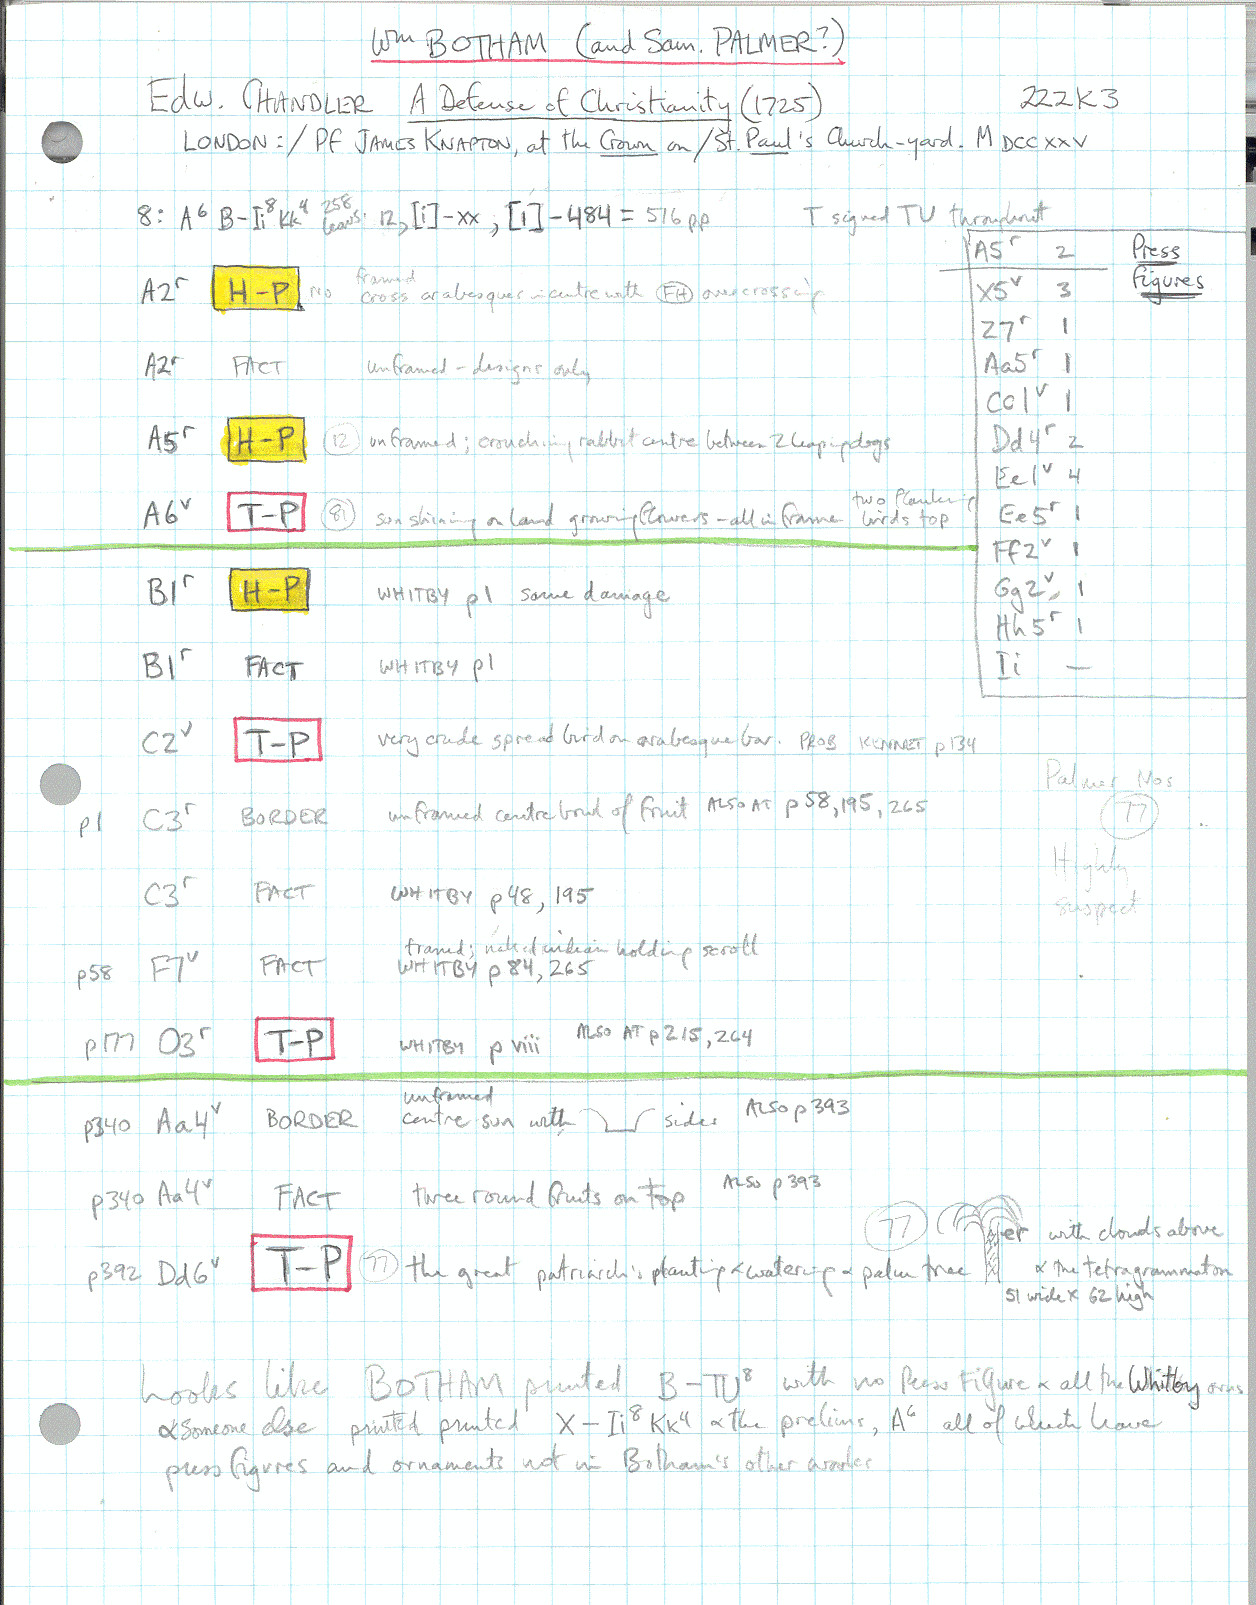 Wm BOTHAM (and Sam. PALMER?)
Edw. CHANDLER A Defense of Christianity (1725) 222K3
LONDON:/ Pf JAMES KNAPTON, at the Crown on/St. Paul's Church-yard. MDCCXXV
8: A⁶ B-Ii⁸ Kk⁴ 258 leaves. 12, [i]-xx, [1]-484 = 516 pp T signed TU throughout
A5ʳ 2 Press
Figures
X5ᵛ 3
Z7ʳ 1
Aa5ʳ 1
Cc1ᵛ 1
Dd4ʳ 2
Ee1ᵛ 4
Ee5ʳ 1
Ff2ᵛ 1
Gg2ᵛ 1
Hh5ʳ 1
Ii —
A2ʳ H-P No framed cross arabesques in centre with FH overcrossing
A2ʳ FACT unframed - designs only
A5ʳ H-P 12 unframed; crouching rabbit centre between 2 leaping dogs
A6ᵛ T-P 81 sun shining on land growing flowers - all in frame two flanking birds top
B1ʳ H-P WHITBY p1 same damage
B1ʳ FACT WHITBY p1
C2ᵛ T-P very crude spread bird on arabesque bar. PROB KENNET p134
Palmer Nos
77
Highly
suspect
p1 C3ʳ BORDER unframed centre bowl of fruit ALSO AT p58, 195, 265
C3ʳ FACT WHITBY p48, 195
framed; naked indian holding scroll
p58 F7ᵛ FACT WHITBY p84, 265
p177 O3ʳ T-P WHITBY p viii ALSO AT p215, 264
unframed
p340 Aa4ᵛ BORDER centre sun with sides ALSO p393
p340 Aa4ᵛ FACT three round fruits on top ALSO p393
77 er with clouds above
p392 Dd6ᵛ T-P 77 the great patriarch's planting & watering a palm tree & the tetragrammaton
51 wide x 62 high
Looks like BOTHAM printed B-TU⁸ with no Press Figure & all the Whitby orns
& someone else printed printed X-Ii⁸ Kk⁴ & the prelims, A⁶ all of which have
press figures and ornaments not in Botham's other works